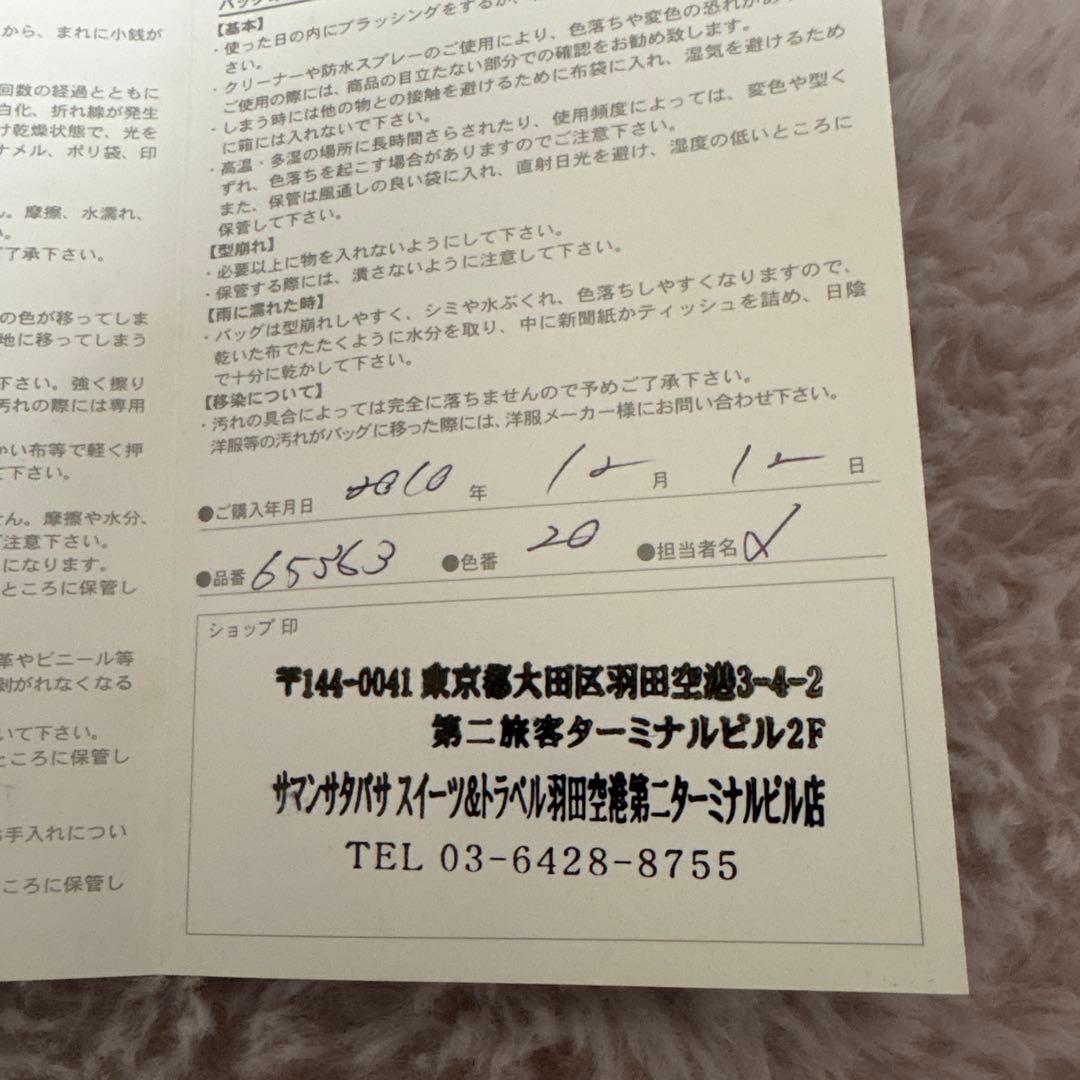 から、まれに小銭が
回数の経過とともに
白化、折れ線が発生
け乾燥状態で、光を
ナメル、ポリ袋、印
ん。摩擦、水濡れ、
い。
ご了承下さい。
の色が移ってしま
地に移ってしまう
下さい。強く擦り
汚れの際には専用
かい布等で軽く押
て下さい。
せん。摩擦や水分、
ご注意下さい。
になります。
ところに保管し
革やビニール等
剥がれなくなる
いて下さい。
ところに保管し
お手入れについ
ころに保管し
【基本】
・使った日の内にブラッシングをするか、
さい。
・クリーナーや防水スプレーのご使用により、色落ちや変色の恐れがあ
ご使用の際には、商品の目立たない部分での確認をお勧め致します。
・しまう時には他の物との接触を避けるために布袋に入れ、湿気を避けるため
に箱には入れないで下さい。
・高温・多湿の場所に長時間さらされたり、使用頻度によっては、変色や型く
ずれ、色落ちを起こす場合がありますのでご注意下さい。
また、保管は風通しの良い袋に入れ、直射日光を避け、湿度の低いところに
保管して下さい。
【型崩れ】
・必要以上に物を入れないようにして下さい。
・保管する際には、潰さないように注意して下さい。
【雨に濡れた時】
・バッグは型崩れしやすく、シミや水ぶくれ、色落ちしやすくなりますので、
乾いた布でたたくように水分を取り、中に新聞紙かティッシュを詰め、日陰
で十分に乾かして下さい。
【移染について】
・汚れの具合によっては完全に落ちませんので予めご了承下さい。
洋服等の汚れがバッグに移った際には、洋服メーカー様にお問い合わせ下さい。
●ご購入年月日 2010 年 12 月 12 日
●品番 65363 ●色番 20 ●担当者名
ショップ 印
〒144-0041 東京都大田区羽田空港3-4-2
第二旅客ターミナルビル2F
サマンサタバサ スイーツ&トラベル羽田空港第二ターミナルビル店
TEL 03-6428-8755